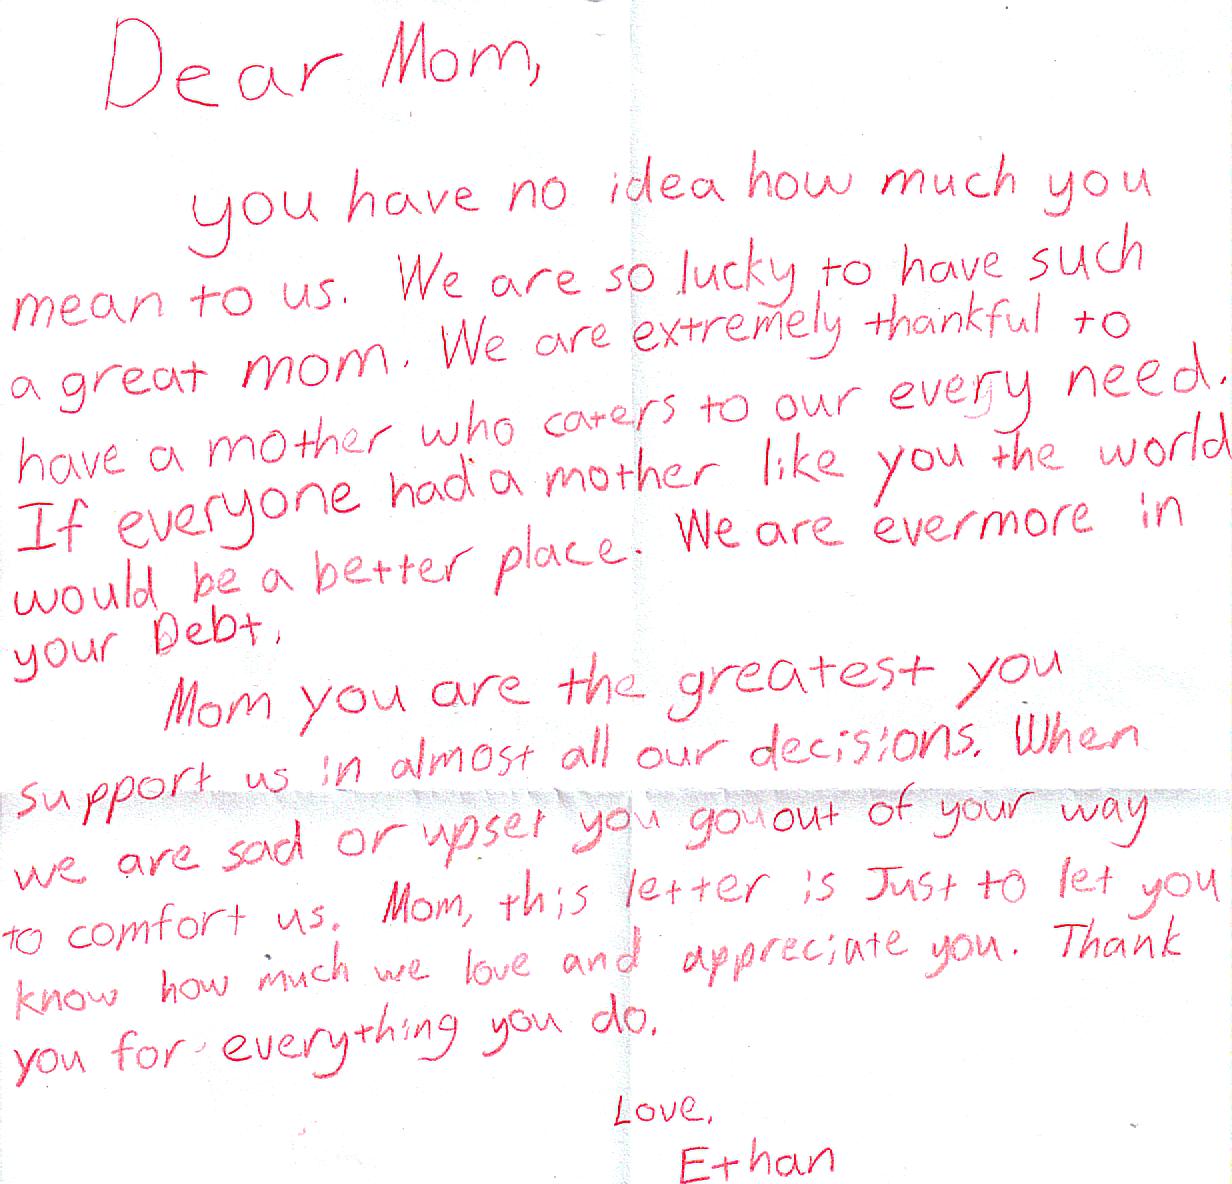 Dear Mom,
you have no idea how much you
mean to us. We are so lucky to have such
a great mom. We are extremely thankful to
have a mother who caters to our every need.
If everyone had a mother like you the world
would be a better place. We are evermore in
your Debt.
Mom you are the greatest you
support us in almost all our decisions. When
we are sad or upset you gouout of your way
to comfort us. Mom, this letter is Just to let you
know how much we love and appreciate you. Thank
you for everything you do.
Love,
Ethan